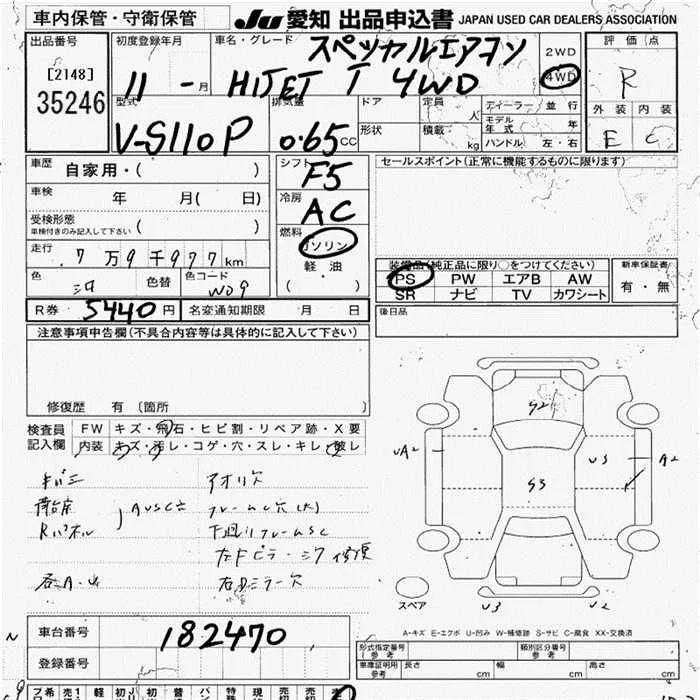 車内保管・守衛保管 JU 愛知 出品申込書 JAPAN USED CAR DEALERS ASSOCIATION
出品番号
[2148]
35246
初度登録年月
11 - 月
車名・グレード
スペシャルエアコン
HIJET T 4WD
2WD
4WD
評価点
R
外装 内装
E C
型式
V-S110P
排気量
0.65 CC
ドア
形状
定員 人
積載 kg
ディーラー・並行
モデル年式 年
ハンドル 左・右
車歴
自家用・( )
車検 年 月( 日)
受検形態
車検付きのみ記入して下さい ・( )
走行 7万9千977 km
色 シロ 色替 色コード W09
シフト
F5
冷房
AC
燃料
ガソリン
軽油
(・)
セールスポイント(正常に機能するものに限ります)
装備品(純正品に限り○をつけてください)
PS PW エアB AW
SR ナビ TV カワシート
新車保証書
有・無
R券 5440 円 名変通知期限 月 日
後日品
注意事項申告欄(不具合内容等は具体的に記入して下さい)
修復歴 有 〔箇所 〕
検査員記入欄
FW キズ・飛石・ヒビ割・リペア跡・X要
内装 キズ・汚レ・コゲ・穴・スレ・キレ・破レ
キバミ
荷台床
Rパネル
AUSC立
各A・U
アオリ欠
フレームC穴(大)
下廻リフレームSC
左Fピラー・ミワ 修復
右Dミラー欠
S2
S3
UA2
U3
A2
U3
U2
スペア
A-キズ E-エクボ U-凹み W-補修跡 S-サビ C-腐食 XX-交換済
車台番号 182470
登録番号
形式指定番号(参考)
類別区分番号(参考)
車庫証明用(参考) 長さ cm 幅 cm 高さ cm